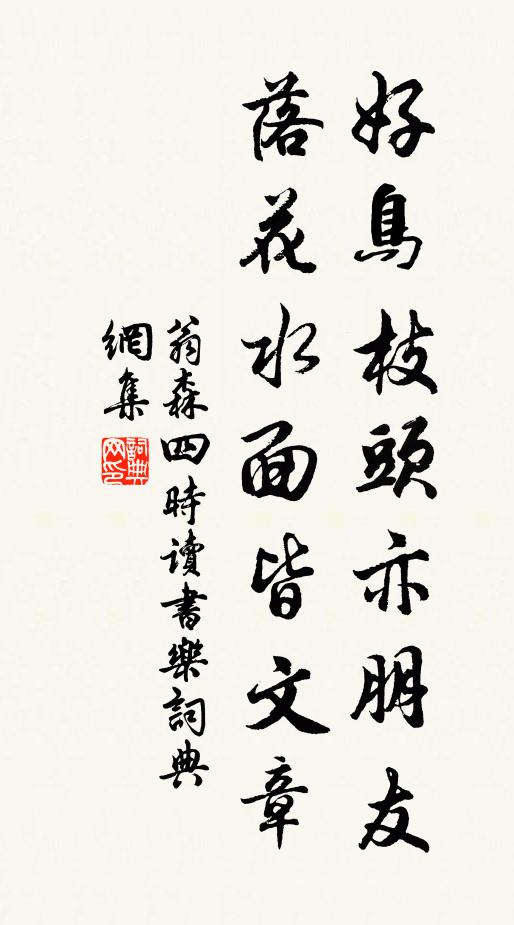 好鳥枝頭亦朋友
落花水面皆文章
翁森四時讀書樂詞典
網集
詞典網印